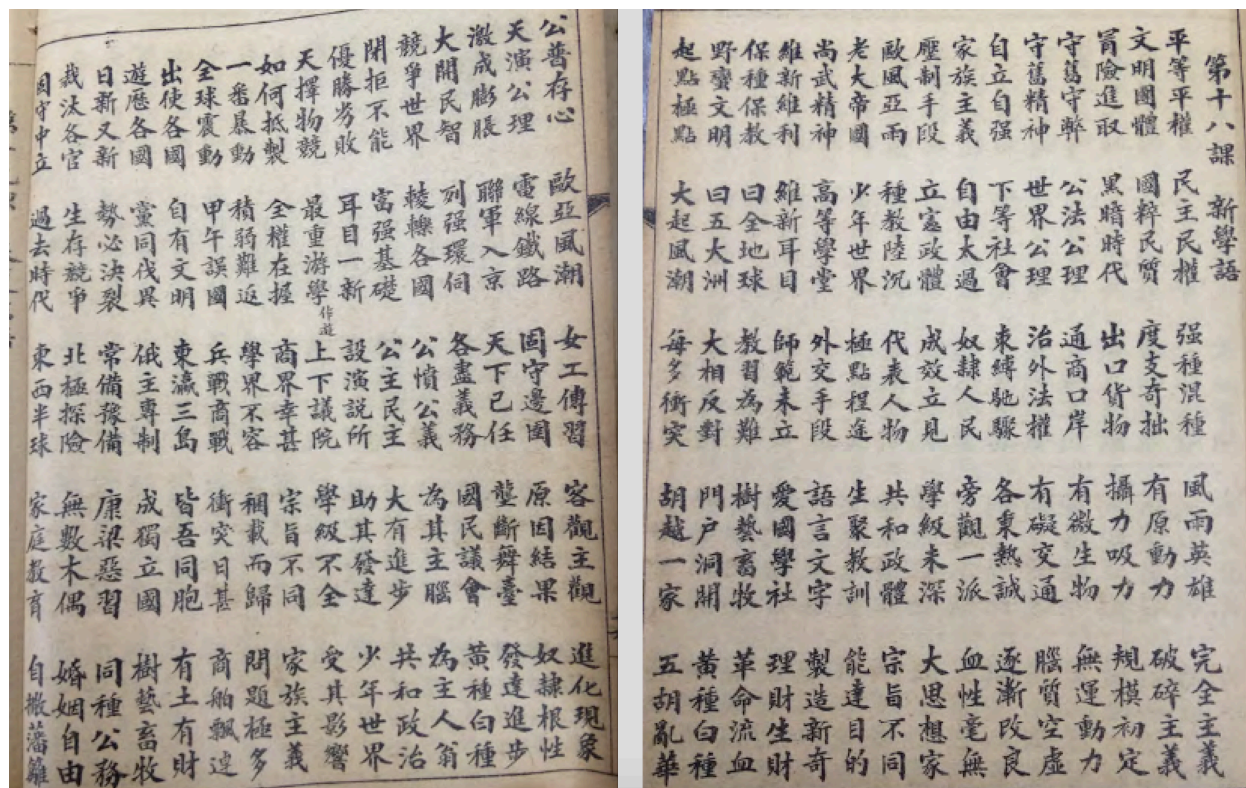 第十八課 新學語
平等平權 民主民權 强種混種 風雨英雄 完全主義
文明國體 國粹民質 度支奇拙 有原動力 破碎主義
冐險進取 黑暗時代 出口貨物 攝力吸力 規模初定
守舊守弊 公法公理 通商口岸 有微生物 無運動力
守舊精神 世界公理 治外法權 有礙交通 腦質空虛
自立自强 下等社會 束縛馳驟 各秉熱誠 逐漸改良
家族主義 自由太過 奴隸人民 旁觀一派 血性毫無
壓制手段 立憲政體 成效立見 學級未深 大思想家
歐風亞雨 種教陸沉 代表人物 共和政體 宗旨不同
老大帝國 少年世界 極點程途 生聚教訓 能達目的
尚武精神 高等學堂 外交手段 語言文字 製造新奇
維新維利 維新耳目 師範未立 愛國學社 理財生財
保種保教 曰全地球 教習為難 樹藝畜牧 革命流血
野蠻文明 曰五大洲 大相反對 門户洞開 黃種白種
起點極點 大起風潮 每多衝突 胡越一家 五胡亂華
公普存心 歐亞風潮 女工傳習 容觀主觀 進化現象
天演公理 電線鐵路 固守邊圉 原因結果 奴隸根性
激成膨脹 聯軍入京 天下已任 壟斷舞臺 發達進步
大開民智 列强環伺 各盡義務 國民議會 黃種白種
競爭世界 輘轢各國 公憤公義 為其主腦 為主人翁
閉拒不能 富强基礎 公主民主 大有進步 共和政治
優勝劣敗 耳目一新 設演説所 助其發達 少年世界
天擇物競 最重游學 作遊 上下議院 學級不全 受其影響
如何抵製 全權在握 商界幸甚 宗旨不同 家族主義
一番暴動 積弱難返 學界不容 稇載而歸 問題極多
全球震動 甲午誤國 兵戰商戰 衝突日甚 商舶飄
出使各國 自有文明 東瀛三島 皆吾同胞 有土有財
遊歷各國 黨同伐異 俄主專制 成獨立國 樹藝畜牧
日新又新 勢必決裂 常備豫備 康梁惡習 同種公務
裁汰各官 生存競爭 北極探險 無數木偶 婚姻自由
固守中立 過去時代 東西半球 家庭教育 自撤藩籬